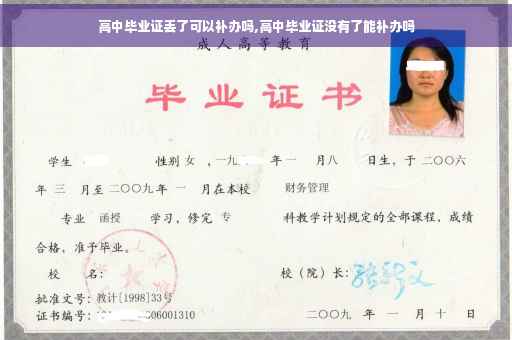 高中毕业证丢了可以补办吗,高中毕业证没有了能补办吗
成人高等教育
毕业证书
学生 性别 女 ,一九 年 一 月八 日生,于二〇〇六
年 三 月至二〇〇九年 一 月在本校 财务管理
专业 函授 学习,修完 专 科教学计划规定的全部课程,成绩
合格,准予毕业。
校 名: 校(院)长:
批准文号:教计[1998]33号
证书编号: 06001310 二〇〇九 年 一 月 十 日